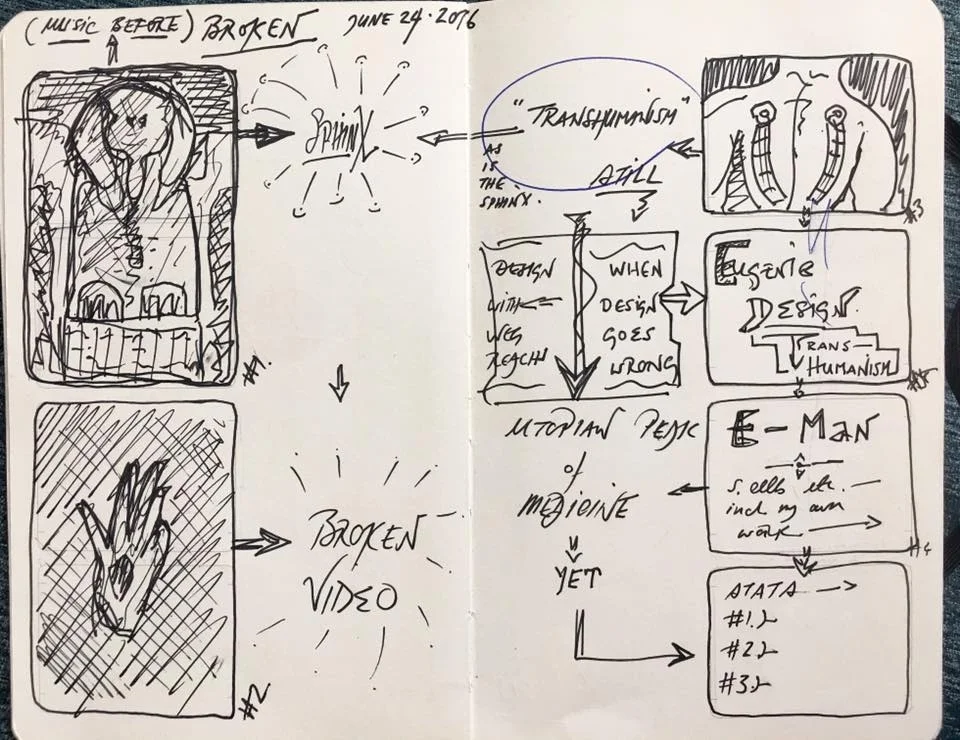 (MUSIC BEFORE) BROKEN JUNE 24·2076
SPHINX
#1.
#2
BROKEN
VIDEO
"TRANSHUMANISM"
AS
IS
THE
SPHINX.
#3
DESIGN
WITH
WHEN
DESIGN
GOES
WRONG
EUGENIC
DESIGN.
TRANS-
HUMANISM
UTOPIAN PEAK
of
MEDICINE
YET
E-MAN
S. cells etc. —
incl my own
work
#4
ATATA
#1.2
#2.2
#3.2